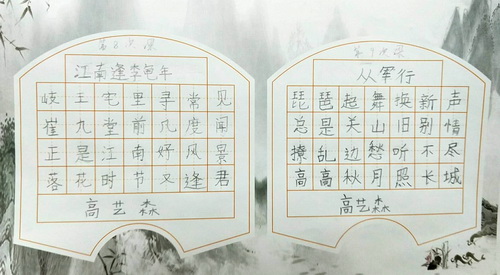 第8次课
江南逢李龟年
岐王宅里寻常见
崔九堂前几度闻
正是江南好风景
落花时节又逢君
高艺森
第9次课
从军行
琵琶起舞换新声
总是关山旧别情
撩乱边愁听不尽
高高秋月照长城
高艺森